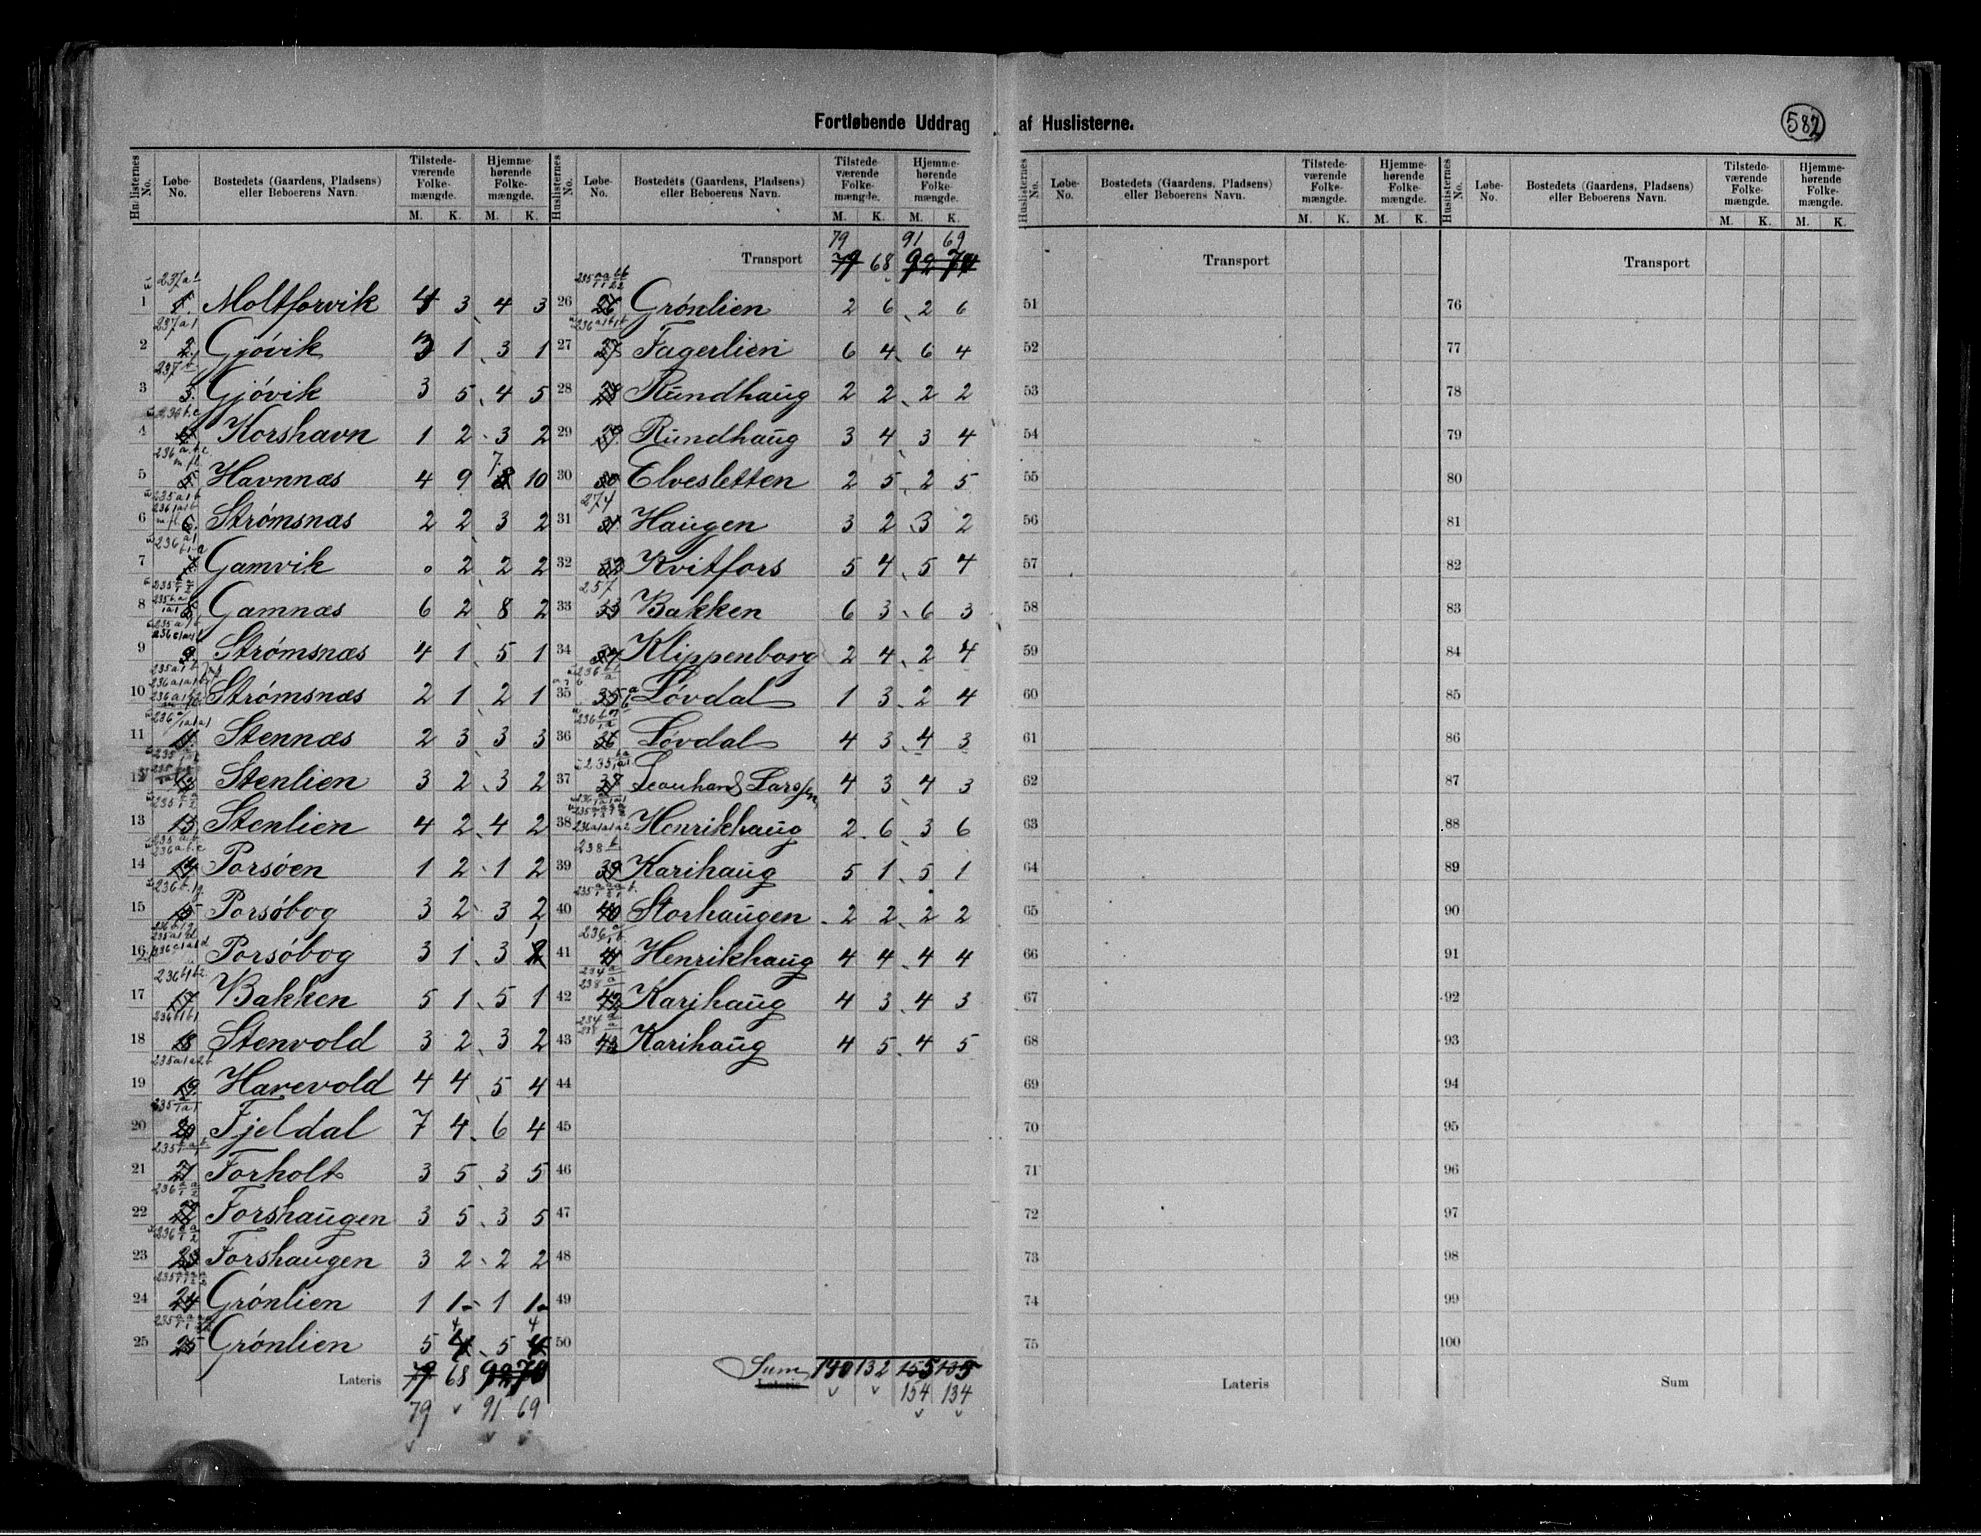 Fortløbende Uddrag af Huslisterne.
582
Huslisternes No. Løbe-No. Bostedets (Gaardens, Pladsens) eller Beboerens Navn. Tilstedeværende Folkemængde. M. K. Hjemmehørende Folkemængde. M. K.
1 Moltforvik 4 3 4 3
2 Gjøvik 3 1 3 1
3 Gjøvik 3 5 4 5
4 Korshavn 1 2 3 2
5 Havnnæs 4 9 7 10
6 Strømsnæs 2 2 3 2
7 Gamvik 0 2 2 2
8 Gamnæs 6 2 8 2
9 Strømsnæs 4 1 5 1
10 Strømsnæs 2 1 2 1
11 Stennæs 2 3 3 3
12 Stenlien 3 2 3 2
13 Stenlien 4 2 4 2
14 Porsøen 1 2 1 2
15 Porsøbog 3 2 3 2
16 Porsøbog 3 1 3 1
17 Bakken 5 1 5 1
18 Stenvold 3 2 3 2
19 Harevold 4 4 5 4
20 Fjeldal 7 4 6 4
21 Forholt 3 5 3 5
22 Forshaugen 3 5 3 5
23 Forshaugen 3 2 2 2
24 Grønlien 1 1 1 1
25 Grønlien 5 4 5 4
Lateris 79 68 92 70
79 91 69
Huslisternes No. Løbe-No. Bostedets (Gaardens, Pladsens) eller Beboerens Navn. Tilstedeværende Folkemængde. M. K. Hjemmehørende Folkemængde. M. K.
79 91 69
Transport 79 68 92 70
26 Grønlien 2 6 2 6
27 Fagerlien 6 4 6 4
28 Rundhaug 2 2 2 2
29 Rundhaug 3 4 3 4
30 Elvesletten 2 5 2 5
274
31 Haugen 3 2 3 2
32 Kvitfors 5 4 5 4
257
33 Bakken 6 3 6 3
34 Klippenborg 2 4 2 4
35 Løvdal 1 3 2 4
36 Løvdal 4 3 4 3
37 Leonhard Larssen 4 3 4 3
38 Henrikhaug 2 6 3 6
39 Karihaug 5 1 5 1
40 Storhaugen 2 2 2 2
41 Henrikhaug 4 4 4 4
42 Karihaug 4 3 4 3
43 Karihaug 4 5 4 5
44
45
46
47
48
49
50
Sum Lateris 140 132 155 135
154 134
Huslisternes No. Løbe-No. Bostedets (Gaardens, Pladsens) eller Beboerens Navn. Tilstedeværende Folkemængde. M. K. Hjemmehørende Folkemængde. M. K.
Transport
51
52
53
54
55
56
57
58
59
60
61
62
63
64
65
66
67
68
69
70
71
72
73
74
75
Lateris
Huslisternes No. Løbe-No. Bostedets (Gaardens, Pladsens) eller Beboerens Navn. Tilstedeværende Folkemængde. M. K. Hjemmehørende Folkemængde. M. K.
Transport
76
77
78
79
80
81
82
83
84
85
86
87
88
89
90
91
92
93
94
95
96
97
98
99
100
Sum